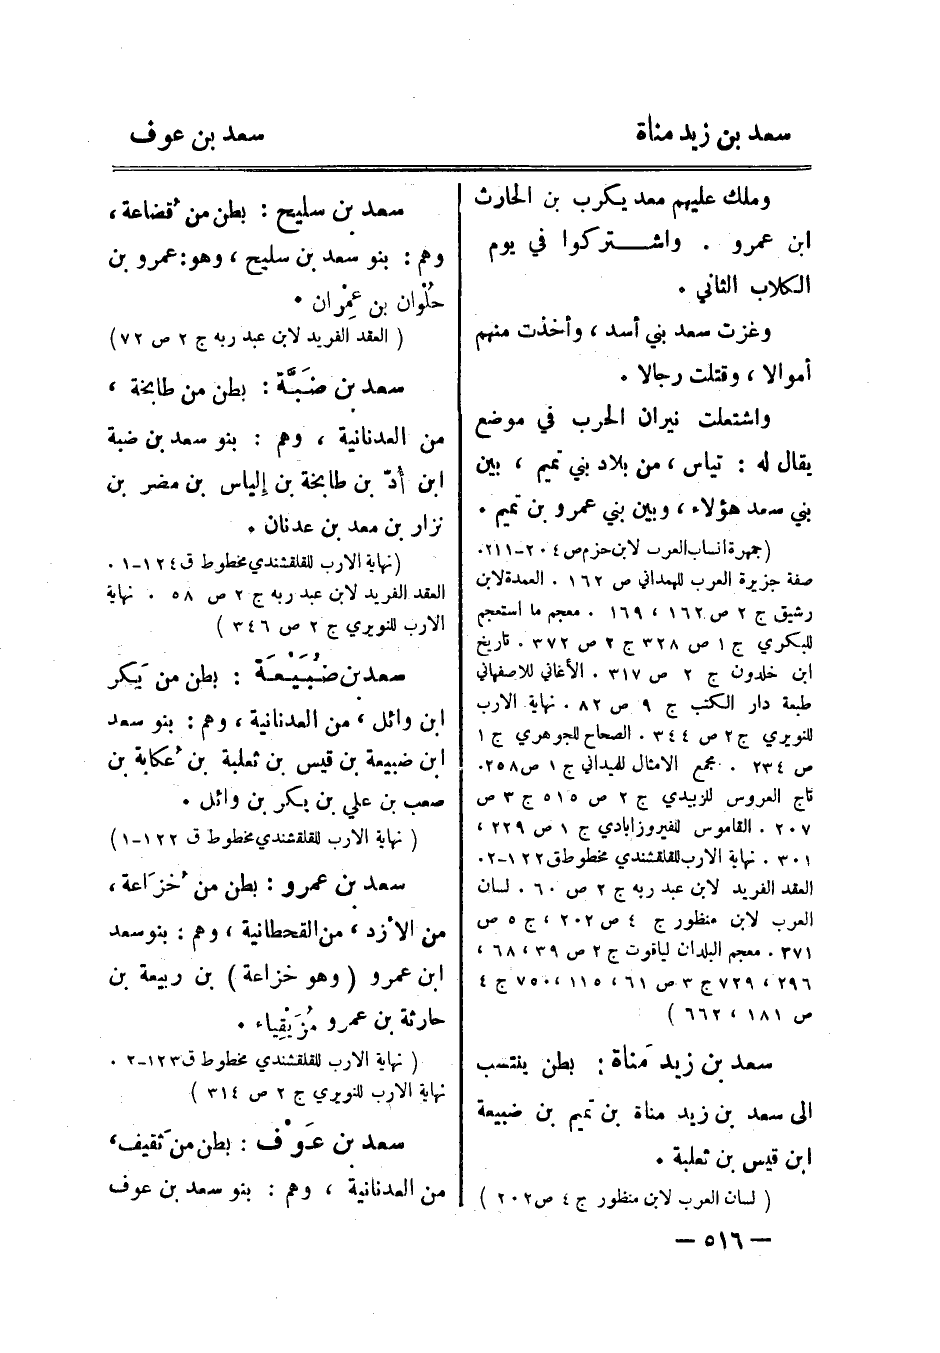 سعد بن زيد مناة
سعد بن عوف
وملك عليهم معد يكرب بن الحارث
ابن عمرو . واشتركوا في يوم
الكلاب الثاني .
وغزت سعد بني أسد ، وأخذت منهم
أموالا ، وقتلت رجالا .
واشتعلت نيران الحرب في موضع
يقال له : تياس ، من بلاد بني تميم ، بين
بني سعد هؤلاء ، وبين بني عمرو بن تميم .
(جمهرة انساب العرب لابن حزم ص ٢٠٤-٢١١.
صفة جزيرة العرب للهمداني ص ١٦٢ . العمدة لابن
رشيق ج ٢ ص ١٦٢ ، ١٦٩ . معجم ما استعجم
للبكري ج ١ ص ٣٢٨ ج ٢ ص ٣٧٢ . تاريخ
ابن خلدون ج ٢ ص ٣١٧ . الأغاني للاصفهاني
طبعة دار الكتب ج ٩ ص ٨٢ . نهاية الارب
للنويري ج ٢ ص ٣٤٤ . الصحاح للجوهري ج ١
ص ٢٣٤ . مجمع الامثال للميداني ج ١ ص ٢٥٨.
تاج العروس للزبيدي ج ٢ ص ٥١٥ ج ٣ ص
٢٠٧ . القاموس للفيروزابادي ج ١ ص ٢٢٩ ،
٣٠١ . نهاية الارب للقلقشندي مخطوط ق ١٢٢-٢.
العقد الفريد لابن عبد ربه ج ٢ ص ٦٠ . لسان
العرب لابن منظور ج ٤ ص ٢٠٢ ، ج ٥ ص
٣٧١ . معجم البلدان لياقوت ج ٢ ص ٣٩ ، ٦٨ ،
٢٩٦ ، ٧٢٩ ج ٣ ص ٦١ ، ١١٥ ، ٧٥٠ ج ٤
ص ١٨١ ، ٦٦٢ )
سعد بن زيد مَناة : بطن ينتسب
الى سعد بن زيد مناة بن تميم بن ضبيعة
ابن قيس بن ثعلبة .
( لسان العرب لابن منظور ج ٤ ص ٢٠٢ )
سعد بن سليح : بطن من قُضاعة ،
وهم : بنو سعد بن سليح ، وهو : عمرو بن
حُلْوان بن عِمْران .
( العقد الفريد لابن عبد ربه ج ٢ ص ٧٢ )
سعد بن ضَبَّة : بطن من طابِخة ،
من العدنانية ، وهم : بنو سعد بن ضبة
ابن أُدّ بن طابخة بن إلياس بن مضر بن
نزار بن معد بن عدنان .
(نهاية الارب للقلقشندي مخطوط ق ١٢٤-١ .
العقد الفريد لابن عبد ربه ج ٢ ص ٥٨ . نهاية
الارب للنويري ج ٢ ص ٣٤٦ )
سعد بن ضُبَيْعَة : بطن من بَكر
ابن وائل ، من العدنانية ، وهم : بنو سعد
ابن ضبيعة بن قيس بن ثعلبة بن عُكابة بن
صعب بن علي بن بكر بن وائل .
( نهاية الارب للقلقشندي مخطوط ق ١٢٢-١ )
سعد بن عمرو : بطن من خُزَاعة ،
من الأزد ، من القحطانية ، وهم : بنو سعد
ابن عمرو ( وهو خزاعة ) بن ربيعة بن
حارثة بن عمرو مُزَيْقِياء .
( نهاية الارب للقلقشندي مخطوط ق ١٢٣-٢ .
نهاية الارب للنويري ج ٢ ص ٣١٤ )
سعد بن عَوْف : بطن من ثَقيف ،
من العدنانية ، وهم : بنو سعد بن عوف
— ٥١٦ —